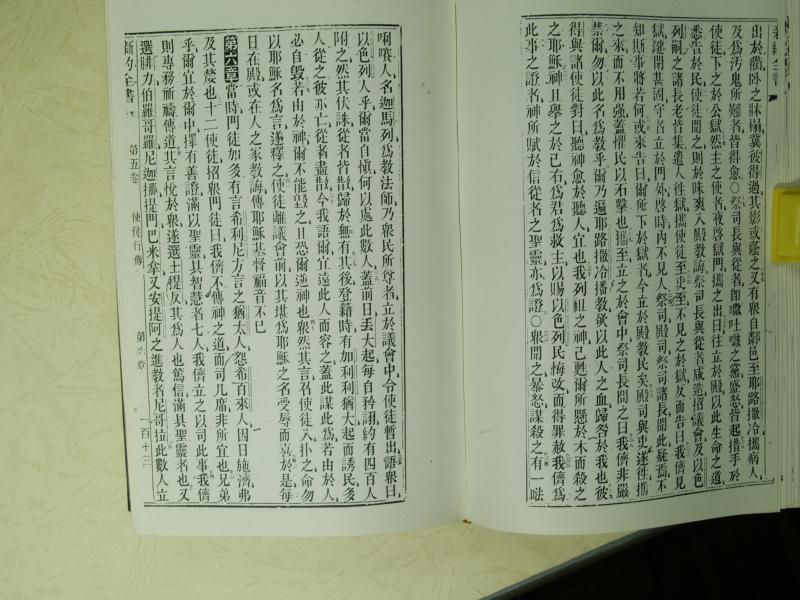 新約全書
出於衢臥之牀榻冀彼得過其影或蔭之又有衆自鄰邑至耶路撒冷攜病人
及爲汚鬼所難者皆得愈○祭司長與從者卽 黨盛怒皆起措手於
使徒下之於公獄然主之使者夜啓獄門攜之出曰往立於殿以此生命之道
悉告於民使徒聞之則於昧爽入殿教誨祭司長與從者咸造招議會及以色
列嗣之諸長老皆集遣人往獄攜使徒至吏至不見之於獄反而告曰我儕見
獄鍵閉甚固守者立於門外啓時內不見人祭司殿司祭司諸長聞此疑焉不
知斯事將若何或來告曰爾所下於獄者今立於殿教民矣殿司與吏遂往攜
之來而不用强蓋懼民以石擊也攜至立之於會中祭司長問之曰我儕非嚴
禁爾勿以此名爲教乎爾乃遍耶路撒冷播教欲以此人之血歸咎於我也彼
得與諸使徒對曰聽神愈於聽人宜也我列祖之神已甦爾所懸於木而殺之
之耶穌且舉之於己右爲君爲救主以賜以色列民悔改而得罪赦我儕爲
此事之證者神所賦於信從者之聖靈亦爲證○衆聞之暴怒謀殺之有一
唎 人名迦馬列爲教法師乃衆民所尊者立於議會中令使徒暫出語衆曰
以色列人乎爾當自愼何以處此數人蓋前日丟大起每自矜詡約有四百人
附之然其伏誅從者皆散歸於無有其後登籍時有加利利猶大起而誘民多
人從之彼亦亡從者盡散今我語爾宜遠此人而容之蓋此謀此爲若由於人
必自毀若由於神爾不能毀之且恐爾逆神也衆然其言召使徒入扑之命勿
以耶穌名爲言遂釋之使徒離議會前以其堪爲耶穌之名受辱而喜於是每
日在殿或在人之家教誨傳耶穌基督福音不已
第六章當時門徒加多有言希利尼方言之猶太人怨希百來人因日施濟弗
及其嫠也十二使徒招衆門徒曰我儕不傳神之道而司几席非所宜也兄弟
乎爾宜於爾中擇有善證滿以聖靈具智慧者七人我儕立之以司此事我儕
則專務祈禱傳道其言悅於衆遂選士提反其爲人也篤信滿具聖靈者也又
選腓力伯羅哥羅尼迦挪提門巴米拿又安提阿之進教者尼哥拉此數人立
新約全書 第五卷 使徒行傳 第六章 一百十三